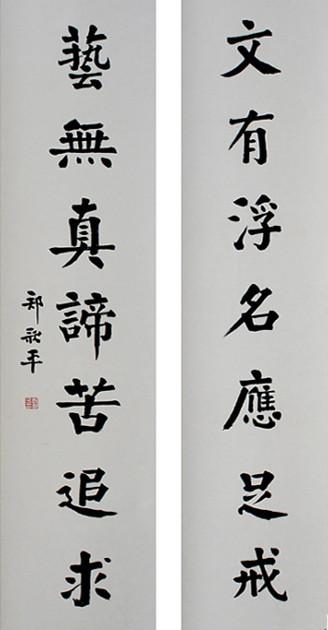 文有浮名應足戒
藝無真諦苦追求
郑秋平